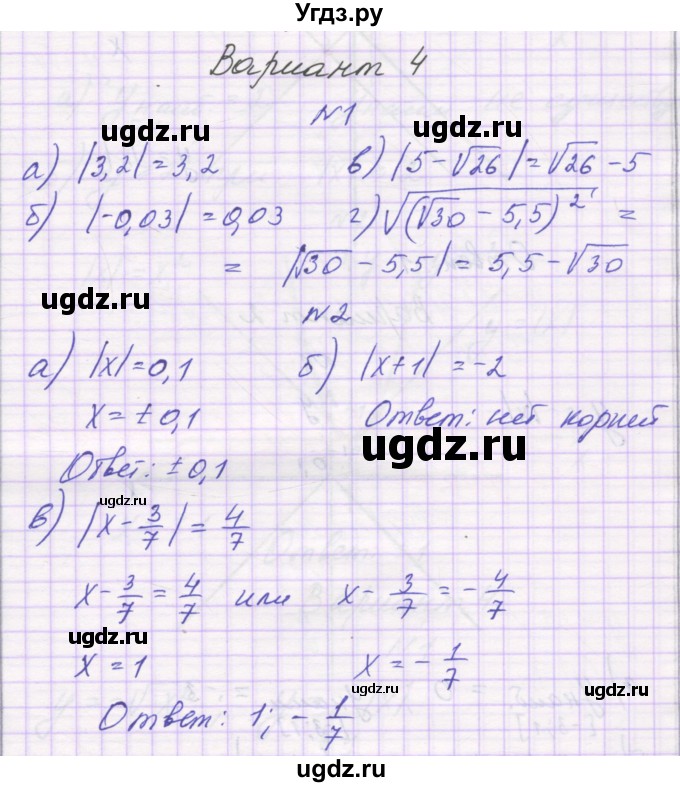 Угдз.ру
Вариант 4
№1
ugdz.ru
ugdz.ru
а) |3,2| = 3,2
в) |5 - √26| = √26 - 5
б) |-0,03| = 0,03
г) √(√30 - 5,5)² =
= |√30 - 5,5| = 5,5 - √30
ugdz.ru
№2
а) |x| = 0,1
б) |x+1| = -2
x = ± 0,1
Ответ: нет корней
ugdz.ru
Ответ: ± 0,1
ugdz.ru
в) |x - 3/7| = 4/7
x - 3/7 = 4/7 или x - 3/7 = - 4/7
ugdz.ru
x = 1
x = - 1/7
ugdz.ru
Ответ: 1; - 1/7
ugdz.ru
ugdz.ru